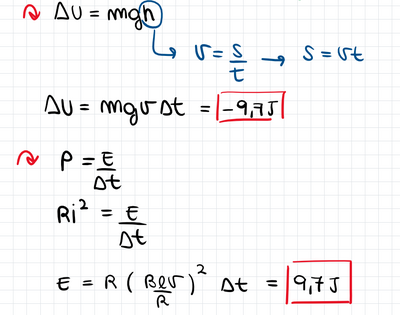 ΔU = mgh
v = s/t → s = vt
ΔU = mgvΔt = -9,7J
P = E/Δt
Ri² = E/Δt
E = R (Bℓv/R)² Δt = 9,7J